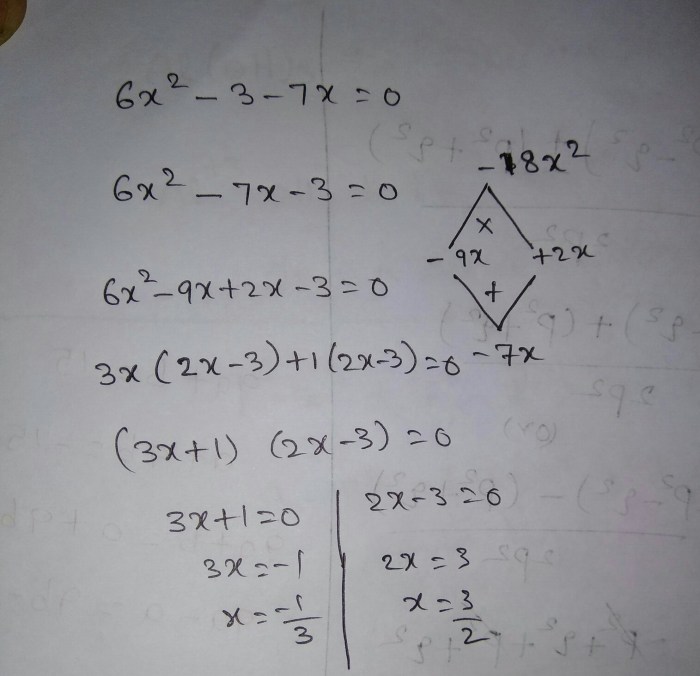 6x² - 3 - 7x = 0
6x² - 7x - 3 = 0
-18x²
×
-9x +2x
+
-7x
6x² - 9x + 2x - 3 = 0
3x (2x-3) + 1 (2x-3) = 0
(3x+1) (2x-3) = 0
3x+1=0
3x = -1
x = -1/3
2x-3=0
2x = 3
x = 3/2